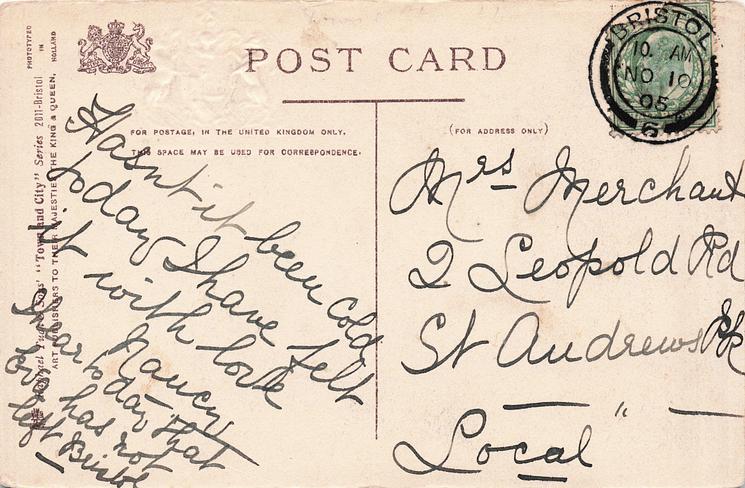 POST CARD
FOR POSTAGE, IN THE UNITED KINGDOM ONLY,
THIS SPACE MAY BE USED FOR CORRESPONDENCE.
(FOR ADDRESS ONLY)
BRISTOL
10. AM
NO 10
05
6
PHOTOTYPED
IN
HOLLAND
Raphael Tuck & Sons' "Town and City" Series 2011-Bristol
ART PUBLISHERS TO THEIR MAJESTIES THE KING & QUEEN.
Hasnt it been cold
today I have felt
it with love
Nancy
I hear today that
has not
left Bristol
Mrs Merchant
2 Leopold Rd
St Andrews Pk
"Local"